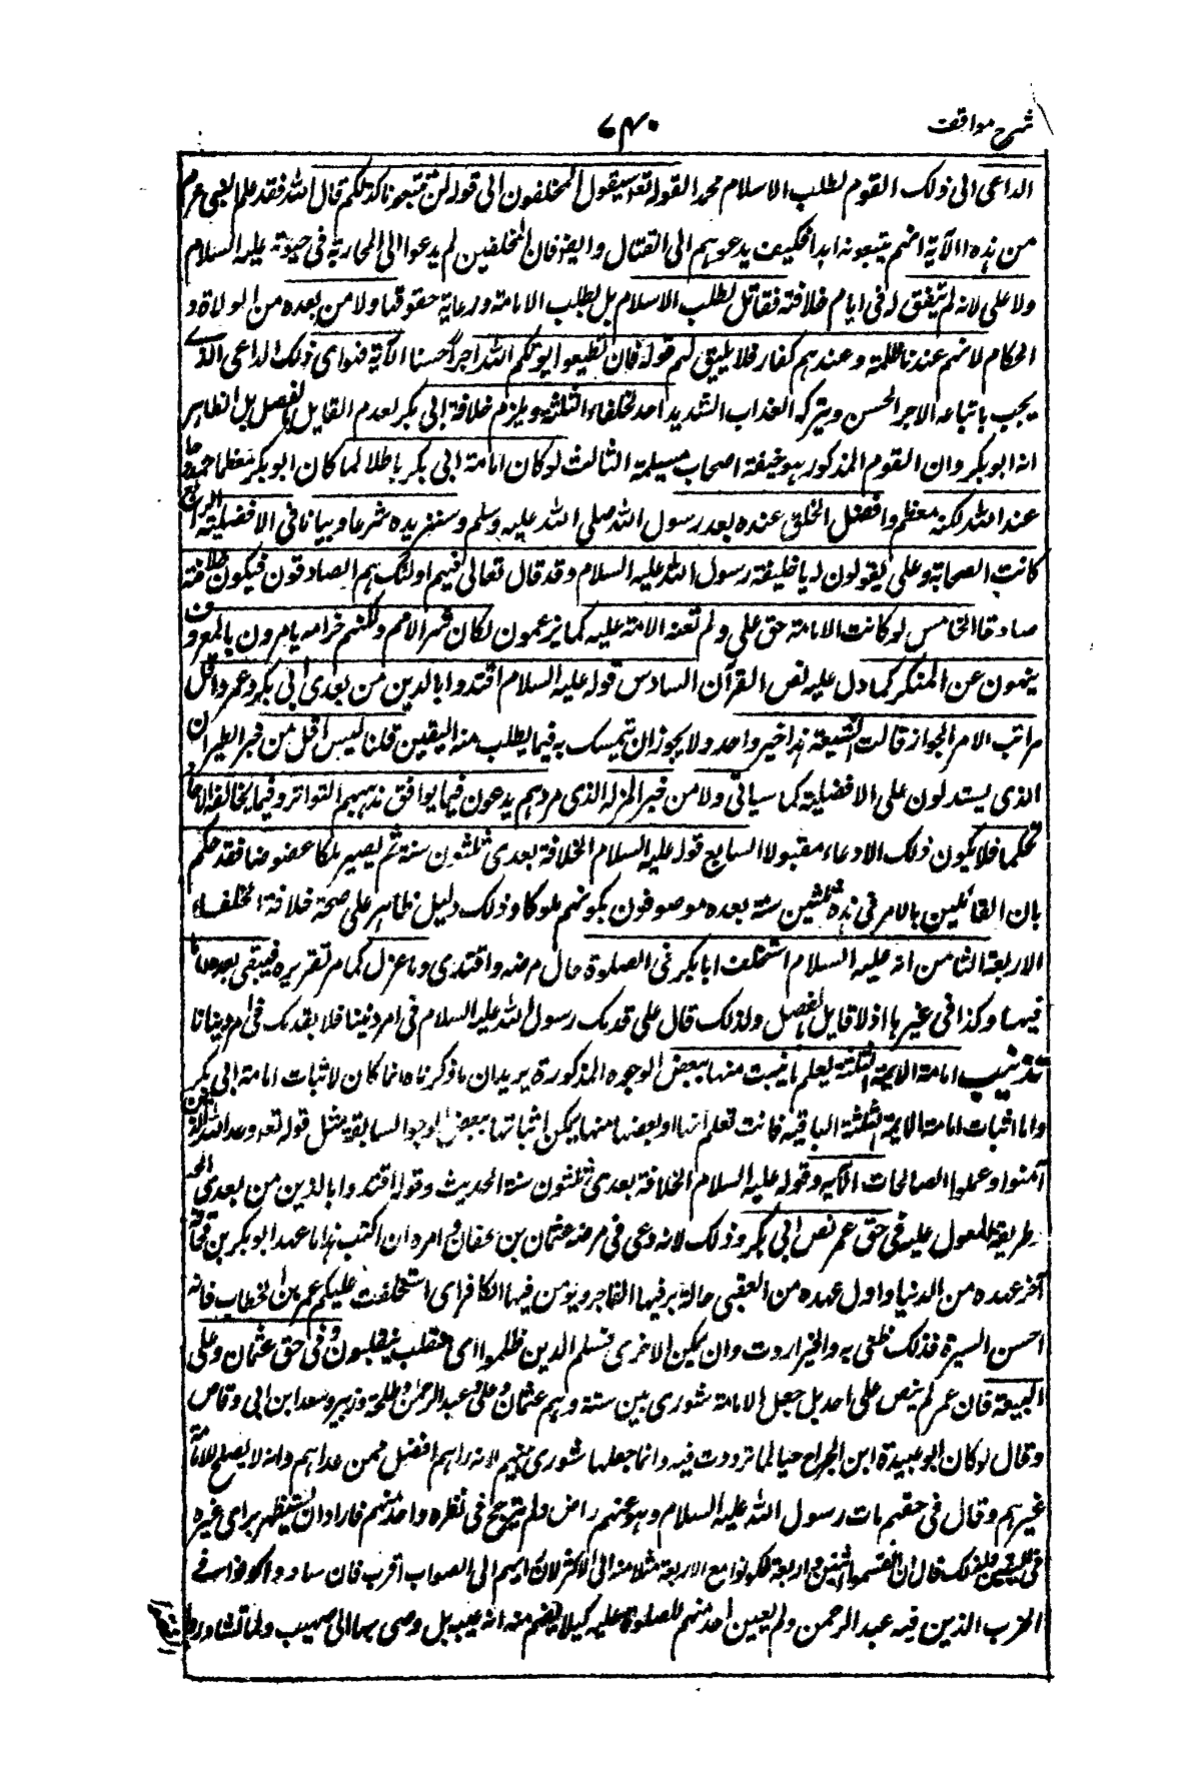 شرح مواقف
۷۴۰
الداعی الی ذلک القوم لطلب الاسلام محمدا لقوله تعہ سیقول المخلفون الی قوله لن تتبعونا کذلکم قال الله فقد علم النبی عم
من ہذه الآیة انہم یتبعونه ابدا فکیف یدعوہم الی القتال وایضا فان المخلفین لم یدعوا الی المحاربة فی حیوته علیه السلام
ولا علی لانه لم یتفق له فی ایام خلافته قتال لطلب الاسلام بل لطلب الامامة ورعایة حقوقها ولا من بعده من الولاة و
الحکام لانہم عندنا ظلمة وعندہم کفار فلا یلیق بہم قوله فان تطیعوا یوتکم الله اجرا حسنا الآیة فہو ای ذلک الداعی الذی
یجب باتباعه الاجر الحسن وبترکه العذاب الشدید احد الخلفاء الثلثة ویلزم خلافة ابی بکر لعدم القایل بالفصل بل الظاہر
انه ابو بکر وان القوم المذکور بنو حنیفة اصحاب مسیلمة الثالث لو کان امامة ابی بکر باطلا لما کان ابو بکر معظما ممدوحا
عند الله لکنه معظم وافضل الخلق عنده بعد رسول الله صلی الله علیه وسلم وسنزیده شرحا وبیانا فی الافضلیة الرابع
کانت الصحابة وعلی یقولون له یا خلیفة رسول الله علیه السلام وقد قال تعالی فیہم اولئک ہم الصادقون فیکون خلافته
صادقا الخامس لو کانت الامامة حق علی ولم تعنه الامة علیه کما یزعمون لکان شر الامم ولکنہم خیر امة یامرون بالمعروف
ینہون عن المنکر کما دل علیه نص القرآن السادس قوله علیه السلام اقتدوا بالذین من بعدی ابی بکر وعمر واقل
مراتب الامر الجواز قالت الشیعة ہذا خبر واحد ولا یجوز ان یتمسک به فیما یطلب منه الیقین قلنا لیس اقل من خبر الطیر ان
الذی یستدلون علی الافضلیة کما سیاتی ولا من خبر المنزلة الذی مر وہم یدعون فیما یوافق مذہبہم التواتر وفیما یخالفه الآحاد
تحکما فلا یکون ذلک الادعاء مقبولا السابع قوله علیه السلام الخلافة بعدی ثلثون سنة ثم یصیر ملکا عضوضا فقد حکم
بان القائلین بالامر فی ہذه ثلثین سنة بعده موصوفون بکونہم ملوکا وذلک دلیل ظاہر علی صحة خلافة الخلفاء
الاربعة الثامن انه علیه السلام استخلف ابا بکر فی الصلوة حال مرضه واقتدی وما عزل کما مر تقریره فیبقی بعده اماما
فیہا وکذا فی غیرہا اذ لا قایل بالفصل ولذلک قال علی قدمک رسول الله علیه السلام فی امر دیننا فلا نقدمک فی امر دنیانا
تذنیب امامة الائمة الثلثة یعلم ما یثبت منہا ببعض الوجوه المذکورة یرید ان ما ذکرناه انما کان لاثبات امامة ابی بکر
واما اثبات امامة الائمة الثلثة الباقیة فانت تعلم انہا او بعضها منہا یمکن اثباتہا ببعض الوجوه السابقة مثل قوله تعہ وعد الله الذین
آمنوا وعملوا الصالحات الآیه وقوله علیه السلام الخلافة بعدی ثلثون سنة الحدیث وقوله اقتدوا بالذین من بعدی الحدیث
طریقة المعول علیه فی حق عمر نص ابی بکر وذلک لانه دعی فی مرضه عثمان بن عفان وامره ان اکتب ہذا ما عہد ابو بکر بن قحافة
آخر عہده من الدنیا واول عہده من العقبی حالة یبر فیہا الفاجر ویؤمن فیہا الکافر ای استخلفت علیکم عمر بن الخطاب فانه
احسن السیرة فذلک ظنی به والخیر اردت وان یکن الاخری فسیعلم الذین ظلموا ای منقلب ینقلبون وفی حق عثمان وعلی
البیعة فان عمر لم ینص علی احد بل جعل الامامة شوری بین ستة وہم عثمان وعلی وعبد الرحمن وطلحة وزبیر وسعد ابن ابی وقاص
وقال لو کان ابو عبیدة ابن الجراح حیا لما ترددت فیه وانما جعلها شوری بینہم لانه راہم افضل ممن عداہم وانه لا یصلح للامامة
غیرہم وقال فی حقہم مات رسول الله علیه السلام وہو عنہم راض ولم یترجح فی نظره واحد منہم فاراد ان یستظہر برای غیره
فی التعیین ولذلک قال ان انقسموا اثنین واربعة فکونوا مع الاربعة مثلا منه الی الاکثر لان رایہم الی الصواب اقرب فان ساووا کونوا فی
الحزب الذین فیه عبد الرحمن ولم یعین احد منہم للصلوة علیه کیلا یفہم منه انه عینه بل وصی بہا الی صہیب ولما تشاوروا